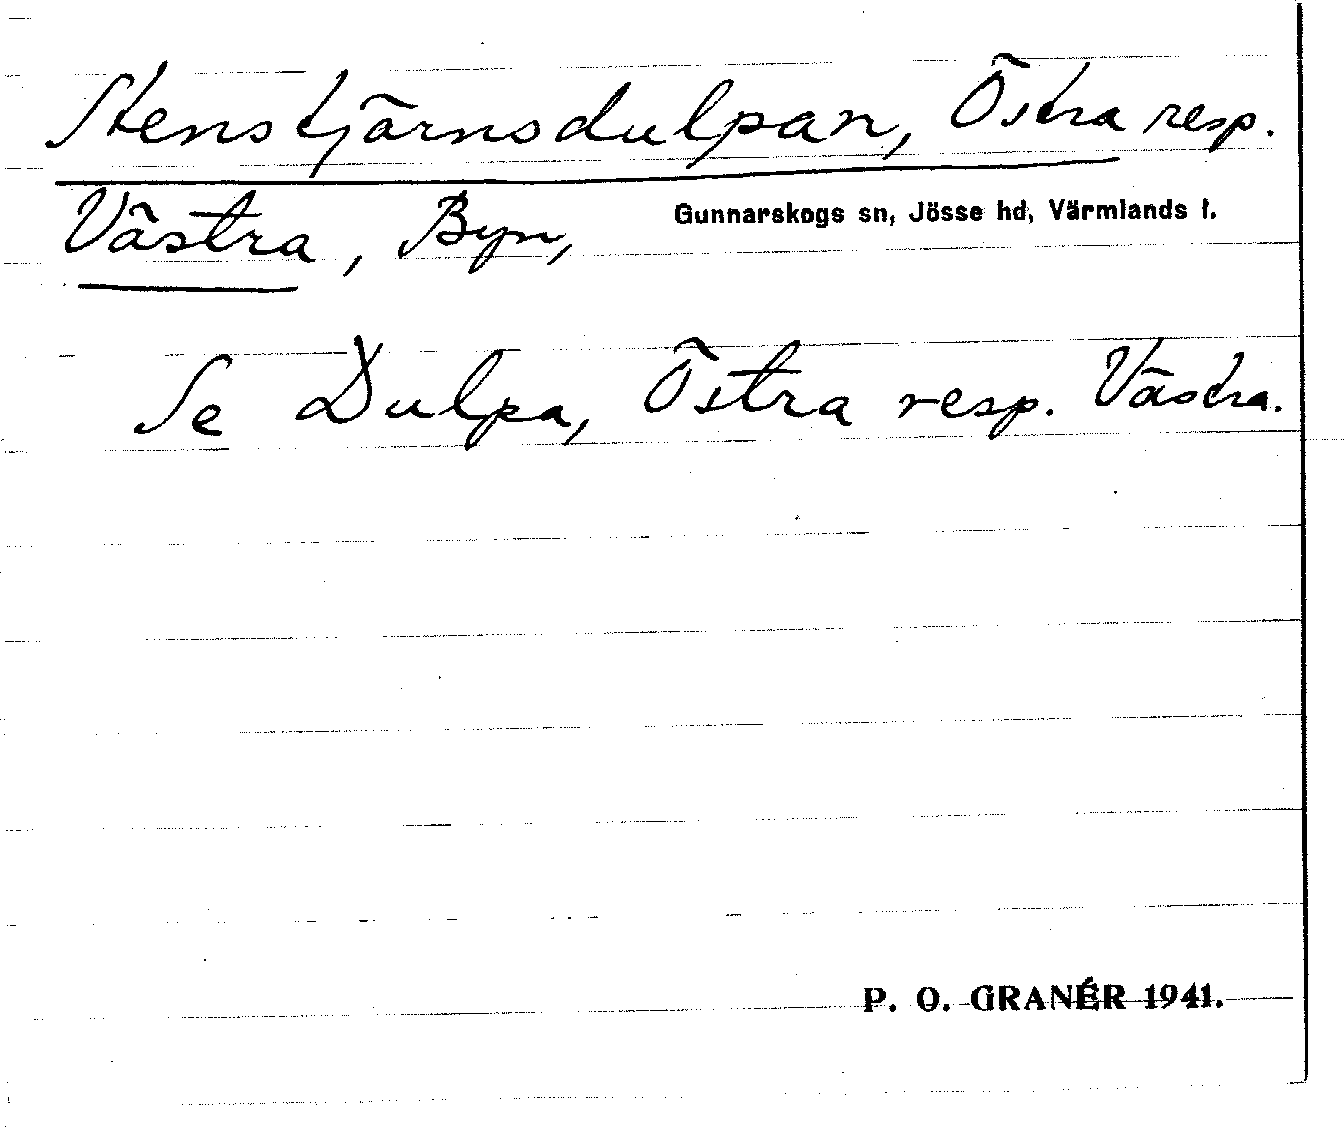 Stenstjärnsdulpan, Östra resp.
Västra, Byn, Gunnarskogs sn, Jösse hd, Värmlands l.
Se Dulpa, Östra resp. Västra.
P. O. GRANÉR 1941.